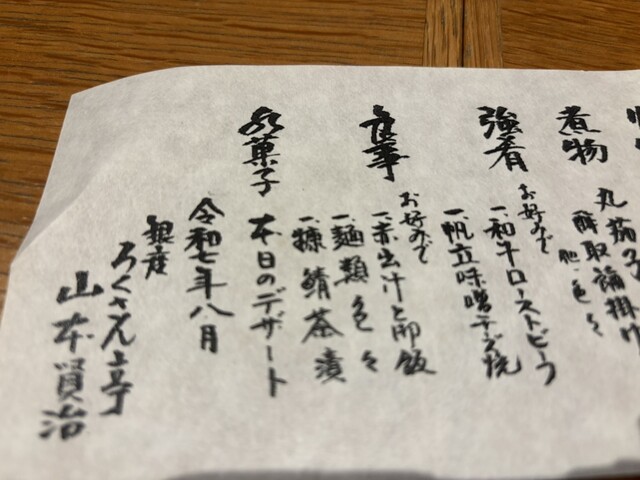 煮物
丸茄子
強肴
お好みで
一、和牛ローストビーフ
一、帆立味噌チーズ焼
食事
お好みで
一、赤出汁と卵飯
一、麺類色々
一、糠鯖茶漬
水菓子
本日のデザート
令和七年八月
銀座
ろくさん亭
山本賢治